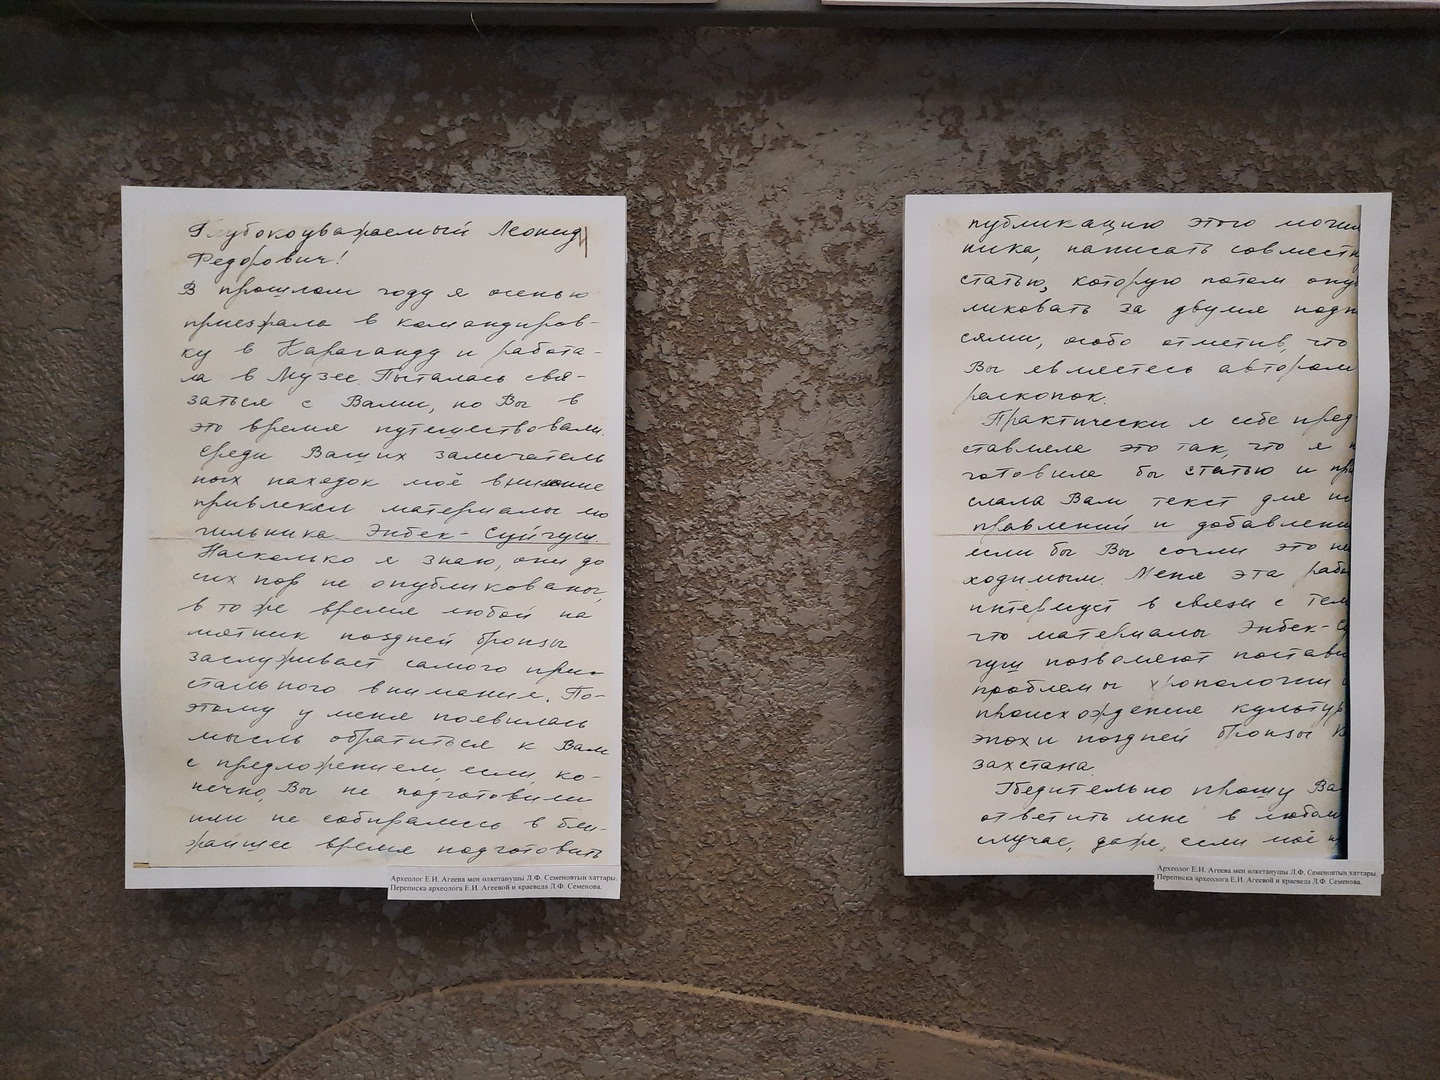 Глубокоуважаемый Леонид
Федорович!
В прошлом году я осенью
приезжала в командиров-
ку в Караганду и работа-
ла в Музее. Пыталась свя-
заться с Вами, но Вы в
это время путешествовали.
Среди Ваших замечатель
ных находок моё внимание
привлекли материалы мо
гильника Энбек-Суйгуш.
Насколько я знаю, они до
сих пор не опубликованы,
в то же время любой па
мятник поздней бронзы
заслуживает самого при-
стального внимания. По-
этому у меня появилась
мысль обратиться к Вам
с предложением, если, ко-
нечно, Вы не подготовили
или не собирались в бли-
жайшее время подготовить
Археолог Е.И. Агеева мен өлкетанушы Л.Ф. Семеновтың хаттары.
Переписка археолога Е.И. Агеевой и краеведа Л.Ф. Семенова.
публикацию этого могил
ника, написать совместн
статью, которую потом опу
ликовать за двумя подп
сями, особо отметив, что
Вы являетесь автором
раскопок.
Практически я себе пред-
ставляла это так, что я п
готовила бы статью и пр
слала Вам текст для ис
правлений и добавлени
если бы Вы сочли это не
ходимым. Меня эта раб
интересует в связи с тем
что материалы Энбек-Су
гуш позволяют постави
проблемы хронологии и
происхождения культур
эпохи поздней бронзы К
захстана.
Убедительно прошу Ва
ответить мне в любом
случае, даже, если моё п
Археолог Е.И. Агеева мен өлкетанушы Л.Ф. Семеновтың хаттары.
Переписка археолога Е.И. Агеевой и краеведа Л.Ф. Семенова.